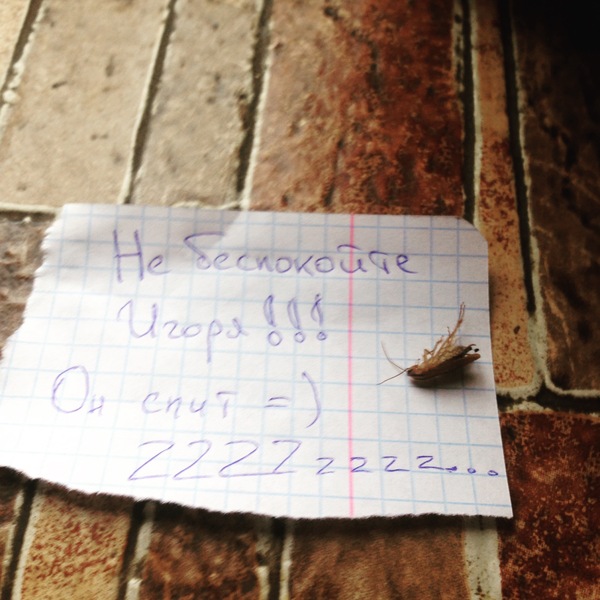 Не беспокойте
Игоря!!!
Он спит =)
ZZZZzzzz...